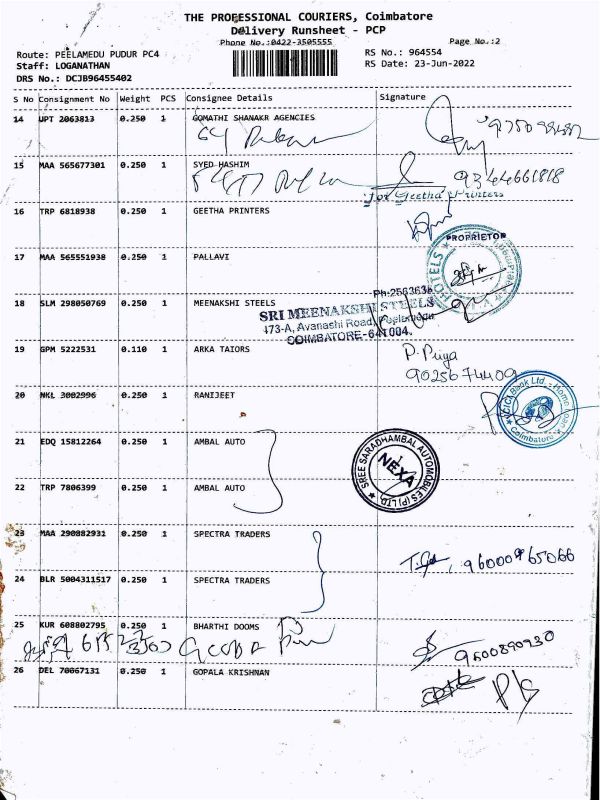 THE PROFESSIONAL COURIERS, Coimbatore
Delivery Runsheet - PCP
Phone No.:0422-3505555
Page No.:2
Route: PEELAMEDU PUDUR PC4
RS No.: 964554
Staff: LOGANATHAN
RS Date: 23-Jun-2022
DRS No.: DCJB96455402
S No Consignment No Weight PCS Consignee Details Signature
14 UPT 2063813 0.250 1 GOMATHI SHANAKR AGENCIES
15 MAA 565677301 0.250 1 SYED HASHIM
9344661818
for Geetha Printers
16 TRP 6818938 0.250 1 GEETHA PRINTERS
PROPRIETOR
17 MAA 565551938 0.250 1 PALLAVI
HOTELS
Ph:2563636
18 SLM 298050769 0.250 1 MEENAKSHI STEELS
SRI MEENAKSHI STEELS
173-A, Avanashi Road, Peelamedu
COIMBATORE-641004.
19 GPM 5222531 0.110 1 ARKA TAIORS
P. Priya
9025674409
20 NKL 3002996 0.250 1 RANIJEET
ICICI Bank Ltd. - Home Loan
Coimbatore
21 EDQ 15812264 0.250 1 AMBAL AUTO
SREE SARADHAMBAL AUTOMOBILES (P) LTD
NEXA
22 TRP 7806399 0.250 1 AMBAL AUTO
23 MAA 290882931 0.250 1 SPECTRA TRADERS
9600965066
24 BLR 5004311517 0.250 1 SPECTRA TRADERS
25 KUR 608802795 0.250 1 BHARTHI DOOMS
9600890930
26 DEL 70067131 0.250 1 GOPALA KRISHNAN